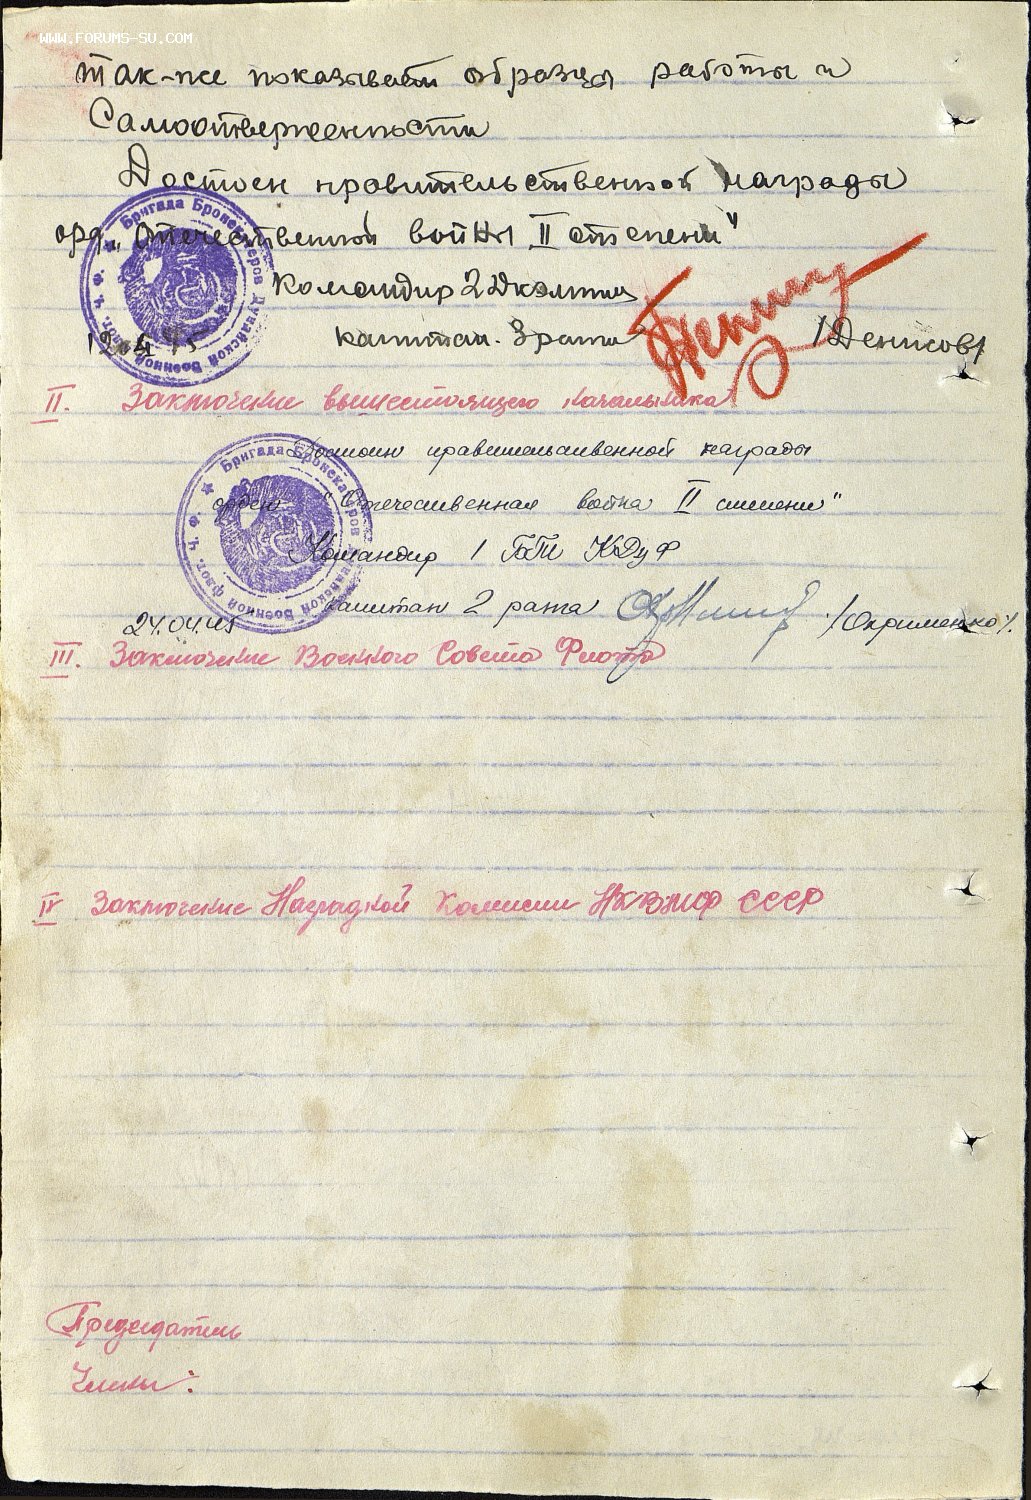 WWW.FORUMS-SU.COM
так-же показывает образцы работы и
Самоотверженности
Достоен правительственной награды
орд. „Отечественной войны II степени"
Командир 2 Дкэлтщ
12.4 45 капитан. 3 ранга /Денисов/
Бригада Бронекатеров Дунайской Военной флот. Ч. Ф.
II. Заключение вышестоящего начальника
Достоин правительственной награды
орден "Отечественная война II степени"
Командир 1 ББТЩ КДуФ
капитан 2 ранга /Охрименко/.
24.04.45
Бригада Бронекатеров Дунайской Военной флот. Ч. Ф.
III. Заключение Военного Совета Флота
IV Заключение Наградной Комиссии НКВМФ СССР
Председатель
Члены: